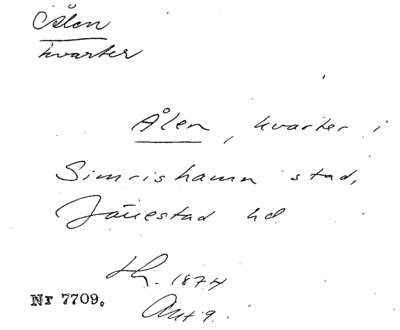 Ålen
kvarter
Ålen, kvarter i
Simrishamn stad,
Järrestad hd
Lh. 1874
Nr 7709.